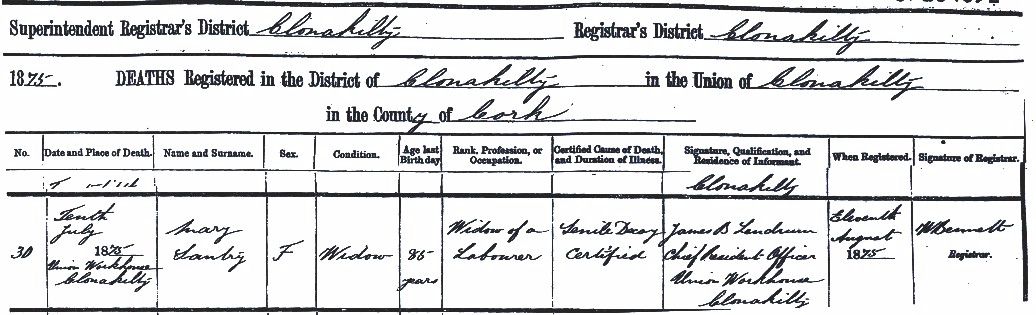 Superintendent Registrar's District Clonakilty Registrar's District Clonakilty
1875. DEATHS Registered in the District of Clonakilty in the Union of Clonakilty
in the County of Cork
No. Date and Place of Death. Name and Surname. Sex. Condition. Age last Birthday Rank, Profession, or Occupation. Certified Cause of Death, and Duration of Illness. Signature, Qualification, and Residence of Informant. When Registered. Signature of Registrar.
Clonakilty
30
Tenth
July
1875
Union Workhouse
Clonakilty
Mary
Santry
F
Widow
85
years
Widow of a
Labourer
Senile Decay
Certified
James B
Chief Resident Officer
Union Workhouse
Clonakilty
Eleventh
August
1875
W Bennett
Registrar.